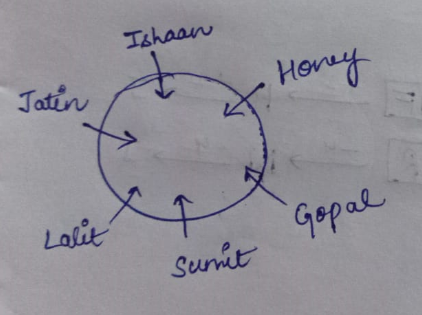 Ishaan
Honey
Jatin
Gopal
Lalit
Sumit